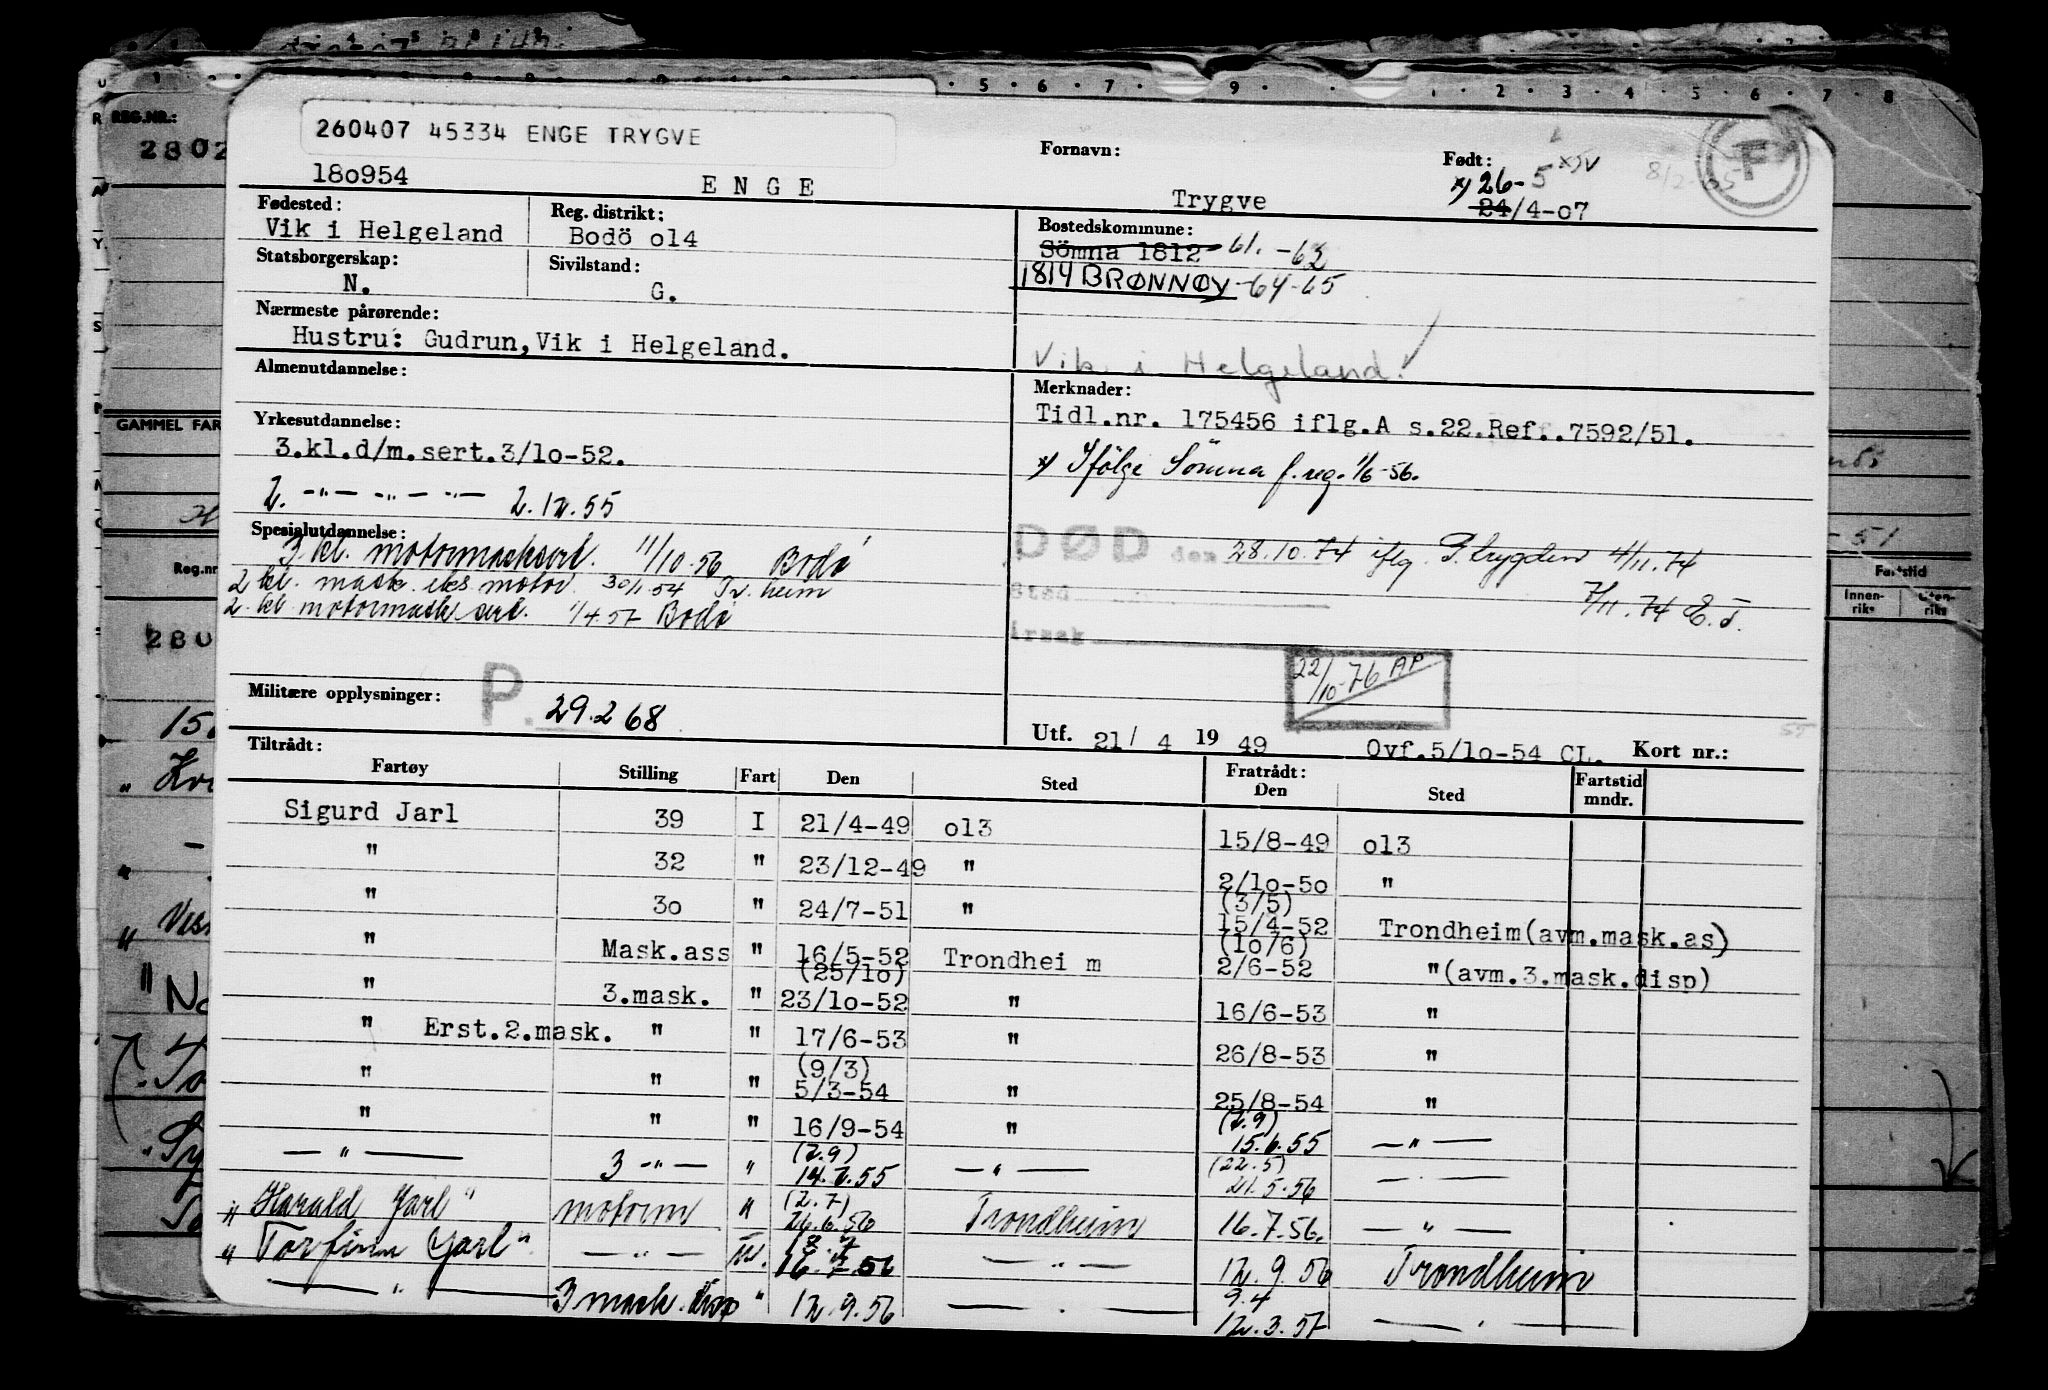 260407 45334 ENGE TRYGVE
18o954
E N G E
Fornavn:
Trygve
Født:
x) 26-5
24/4-o7
8/2-65
F
Fødested:
Vik i Helgeland
Reg. distrikt:
Bodö o14
Bostedskommune:
Sömna 1812 61.-63
1814 BRØNNØY-64-65
Statsborgerskap:
N.
Sivilstand:
G.
Nærmeste pårørende:
Hustru: Gudrun, Vik i Helgeland.
Vik i Helgeland.
Almenutdannelse:
Merknader:
Tidl.nr. 175456 iflg.A s.22.Ref..7592/51.
Yrkesutdannelse:
3.kl.d/m.sert.3/1o-52.
x) Ifölge Sömna f.reg. 1/6-56.
2. -"- -"- -"- 2.12.55
Spesialutdannelse:
3. kl. motormasksert. 11/10.56 Bodø
2 kl. mask. eks motor 30/1.54 Tr.heim
2. kl. motormask sert. 1/4 57 Bodø
DØD den 28.10.74 iflg. P.trygden 4/11.74
Sted
7/11.74 E.T.
22/10-76 AP
Militære opplysninger:
P. 29.2 68
Utf. 21/ 4 19 49 Ovf.5/1o-54 CL. Kort nr.:
Tiltrådt:
Fartøy Stilling Fart Den Sted Fratrådt: Den Sted Fartstid mndr.
Sigurd Jarl 39 I 21/4-49 o13 15/8-49 o13
" 32 " 23/12-49 " 2/1o-5o "
" 3o " 24/7-51 " (3/5) 15/4-52 Trondheim(avm.mask.as)
" Mask.ass " 16/5-52 Trondhei m (1o/6) 2/6-52 "(avm.3.mask.disp)
" 3.mask. " (25/1o) 23/1o-52 " 16/6-53 "
" Erst.2.mask. " " 17/6-53 " 26/8-53 "
" " " (9/3) 5/3-54 " 25/8-54 "
" " " 16/9-54 " (2.9) 15.6.55 — " —
— " — 3 -"- " (2.9) 14.7.55 — " — (22.5) 21.5.56 — " —
" Harald Jarl " motorm " (2.7) 26.6.56 Trondheim 16.7.56. — " —
" Torfinn Jarl " — " — 16.7.56 — " — 12.9.56 Trondheim
— " — 3 mask. disp " 12.9.56 — " — 9.4 12.3.57 — " —
REG.NR.:
2802
GAMMEL FAR
Reg.nr
280
Fartstid
Innen-
riks
Uten-
riks